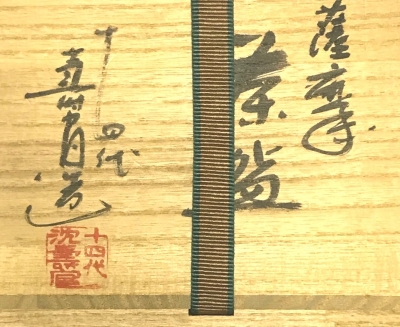 薩摩
茶盌
十四代
壽官造
十四代
沈壽官